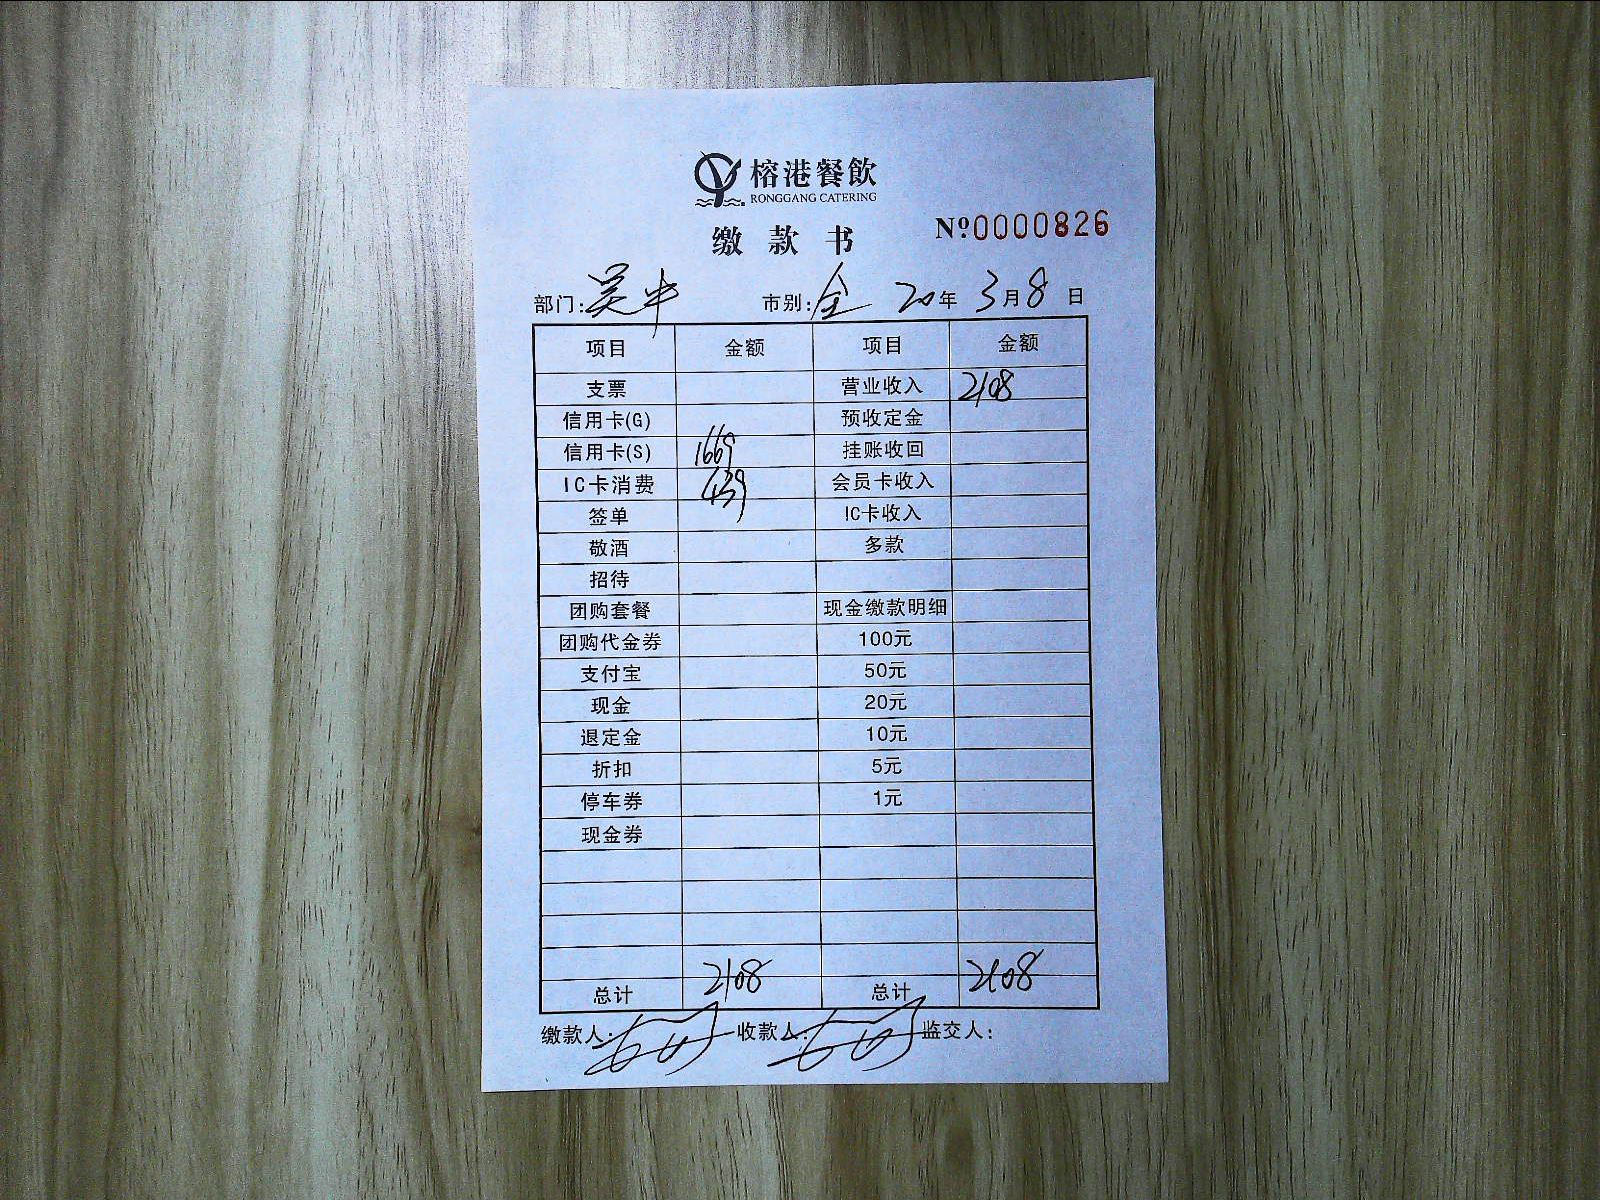 榕港餐飲
RONGGANG CATERING
缴款书 №0000826
部门:吴中 市别:全 20年3月8日
项目 金额 项目 金额
支票 营业收入 2108
信用卡(G) 预收定金
信用卡(S) 1669 挂账收回
IC卡消费 439 会员卡收入
签单 IC卡收入
敬酒 多款
招待
团购套餐 现金缴款明细
团购代金券 100元
支付宝 50元
现金 20元
退定金 10元
折扣 5元
停车券 1元
现金券
总计 2108 总计 2108
缴款人: 收款人: 监交人: